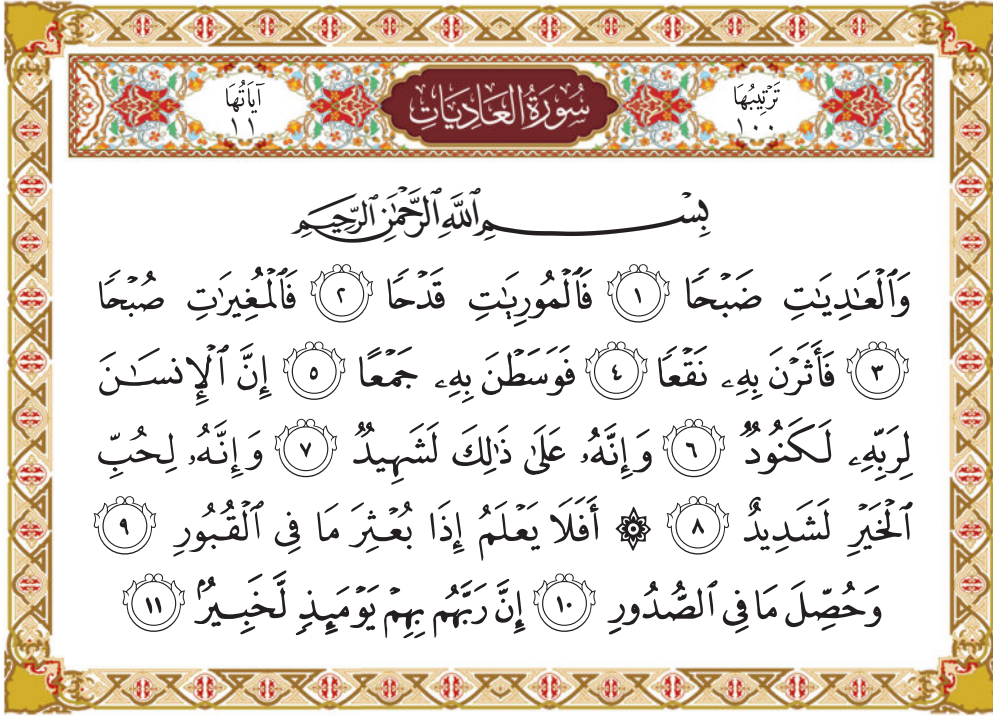 تَرْتِيبُهَا ١٠٠ سُورَةُ الْعَادِيَاتِ آيَاتُهَا ١١
بِسْمِ ٱللَّهِ ٱلرَّحْمَٰنِ ٱلرَّحِيمِ
وَٱلْعَٰدِيَٰتِ ضَبْحًا ١ فَٱلْمُورِيَٰتِ قَدْحًا ٢ فَٱلْمُغِيرَٰتِ صُبْحًا
٣ فَأَثَرْنَ بِهِۦ نَقْعًا ٤ فَوَسَطْنَ بِهِۦ جَمْعًا ٥ إِنَّ ٱلْإِنسَٰنَ
لِرَبِّهِۦ لَكَنُودٌ ٦ وَإِنَّهُۥ عَلَىٰ ذَٰلِكَ لَشَهِيدٌ ٧ وَإِنَّهُۥ لِحُبِّ
ٱلْخَيْرِ لَشَدِيدٌ ٨ ۞ أَفَلَا يَعْلَمُ إِذَا بُعْثِرَ مَا فِى ٱلْقُبُورِ ٩
وَحُصِّلَ مَا فِى ٱلصُّدُورِ ١٠ إِنَّ رَبَّهُم بِهِمْ يَوْمَئِذٍ لَّخَبِيرٌۢ ١١